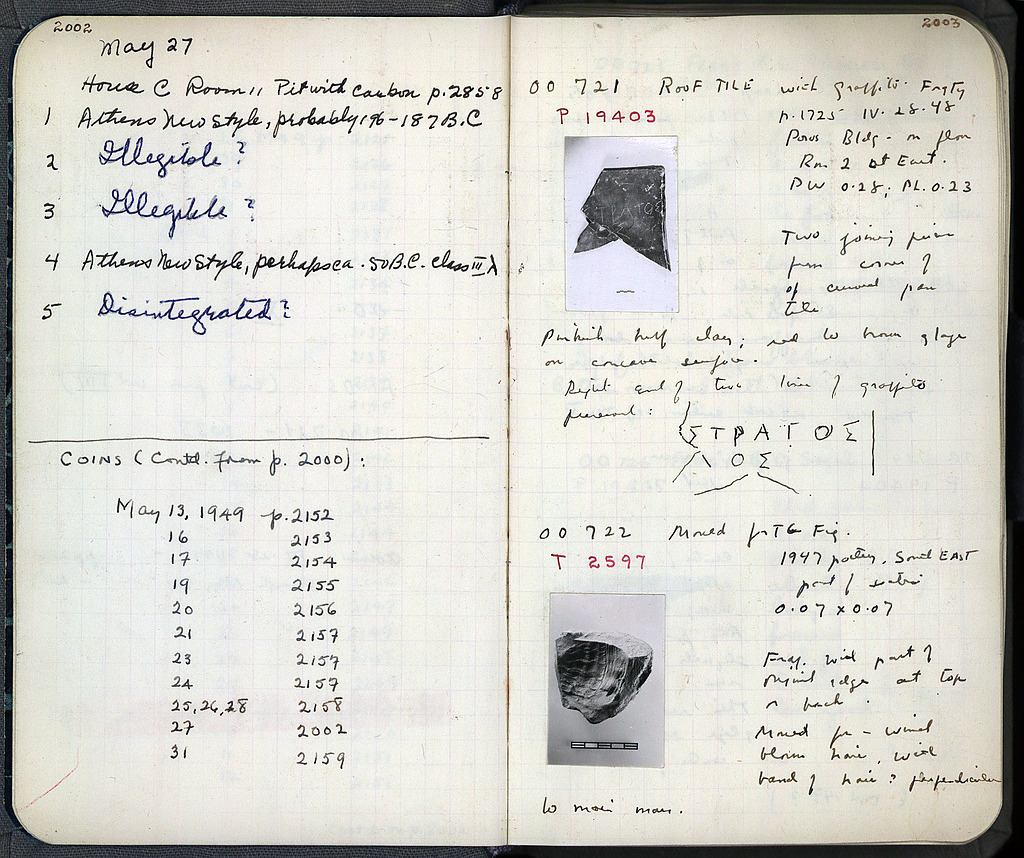 2002
May 27
House C Room 11 Pit with carbon p. 2858
1 Athens New Style, probably 196-187 B.C
2 Illegible ?
3 Illegible ?
4 Athens New Style, perhaps ca. 50 B.C. class III
5 Disintegrated ?
COINS (Contd. from p. 2000):
May 13, 1949 p. 2152
16 2153
17 2154
19 2155
20 2156
21 2157
23 2157
24 2157
25, 26, 28 2158
27 2002
31 2159
2003
OO 721 ROOF TILE with graffito
P 19403
p. 1725 IV-28-48
Poros Bldg - on floor
Rm 2 at East.
PW 0.28; PL. 0.23
Two joining pieces
from corner of
of curved pan
tile
Pinkish buff clay; red to brown glaze
on concave surface.
Right end of two lines of graffito
preserved:
ΣΤΡΑΤΟΣ
ΛΟΣ
OO 722 Mould for TC Fig.
T 2597
1947 pottery, South EAST
part of section
0.07 x 0.07
Frag. with part of
original edges at top
back
Mould for - wind
blown hair, with
band of hair ? perpendicular
to main mass.